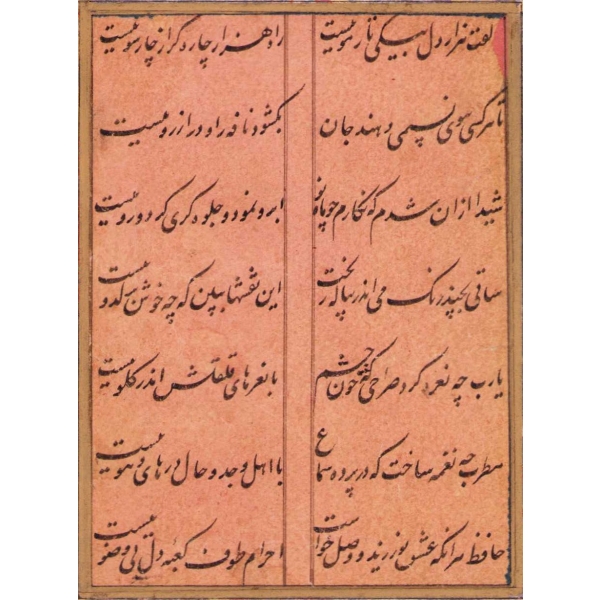 زلفت هزار دل بیکی تار مو ببست راه هزار چاره گر از چار سو ببست
تا هر کسی ببوی نسیمی دهند جان بگشود نافه را و در ارزو ببست
شیدا ازان شدم که نگارم چو ماه نو ابرو نمود و جلوه گری کرد و رو ببست
ساقی بچند رنگ می اندر پیاله ریخت این نقشها ببین که چه خوش در کدو ببست
یارب چه نعره کرد صراحی که خون خم با نعرهای قلقلش اندر گلو ببست
مطرب چه نغمه ساخت که در پرده سماع با اهل وجد و حال در های و هو ببست
حافظ هر انکه عشق نورزید و وصل خواست احرام طوف کعبه دل بی وضو ببست